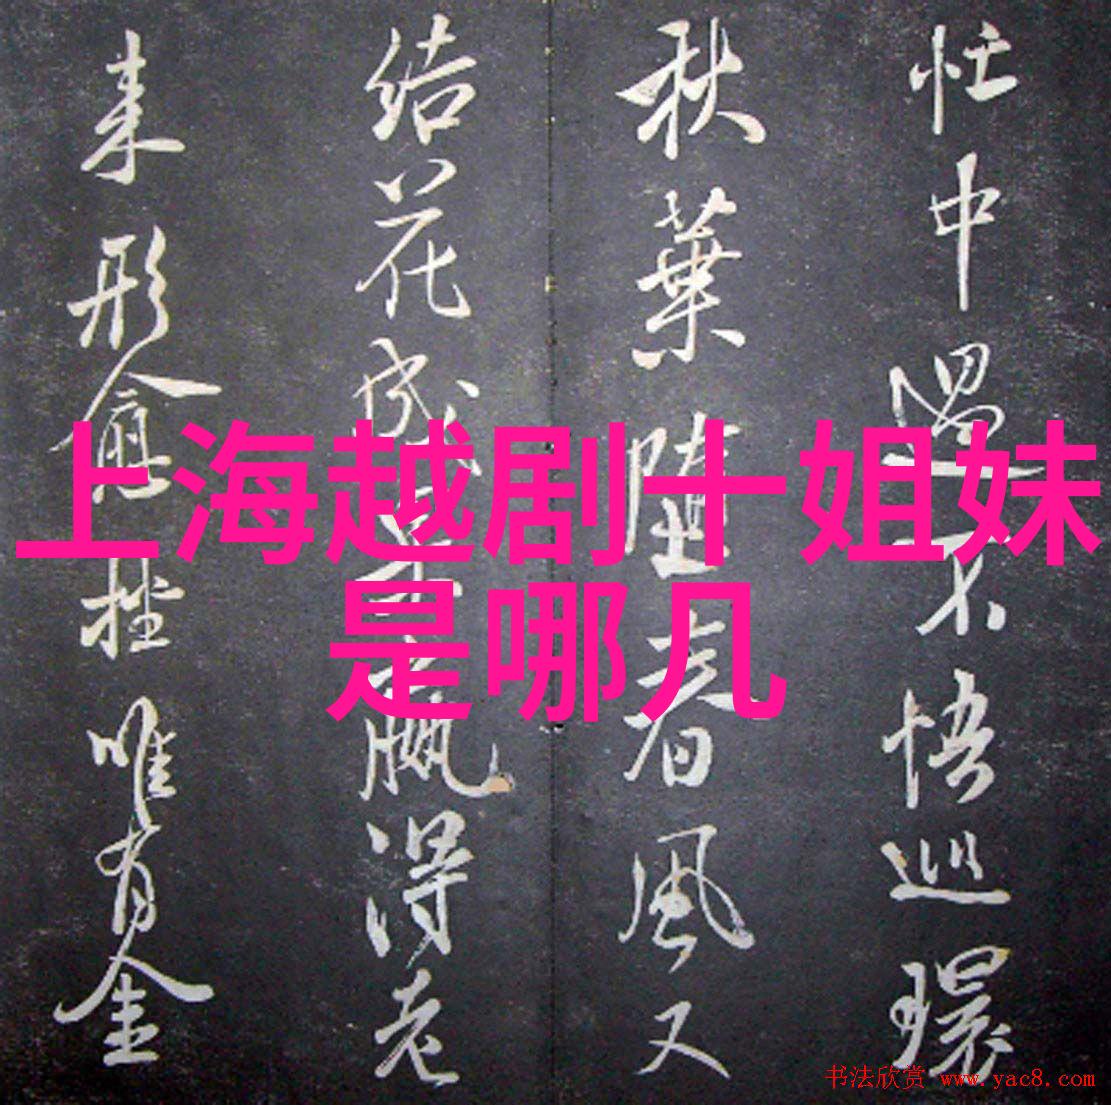 上海越剧十姐妹
是哪几
忙中遇不悟巡環
秋葉随春風又
结花成子嬴得老
来形愈拙唯有金
书法欣赏 www.yac8.com